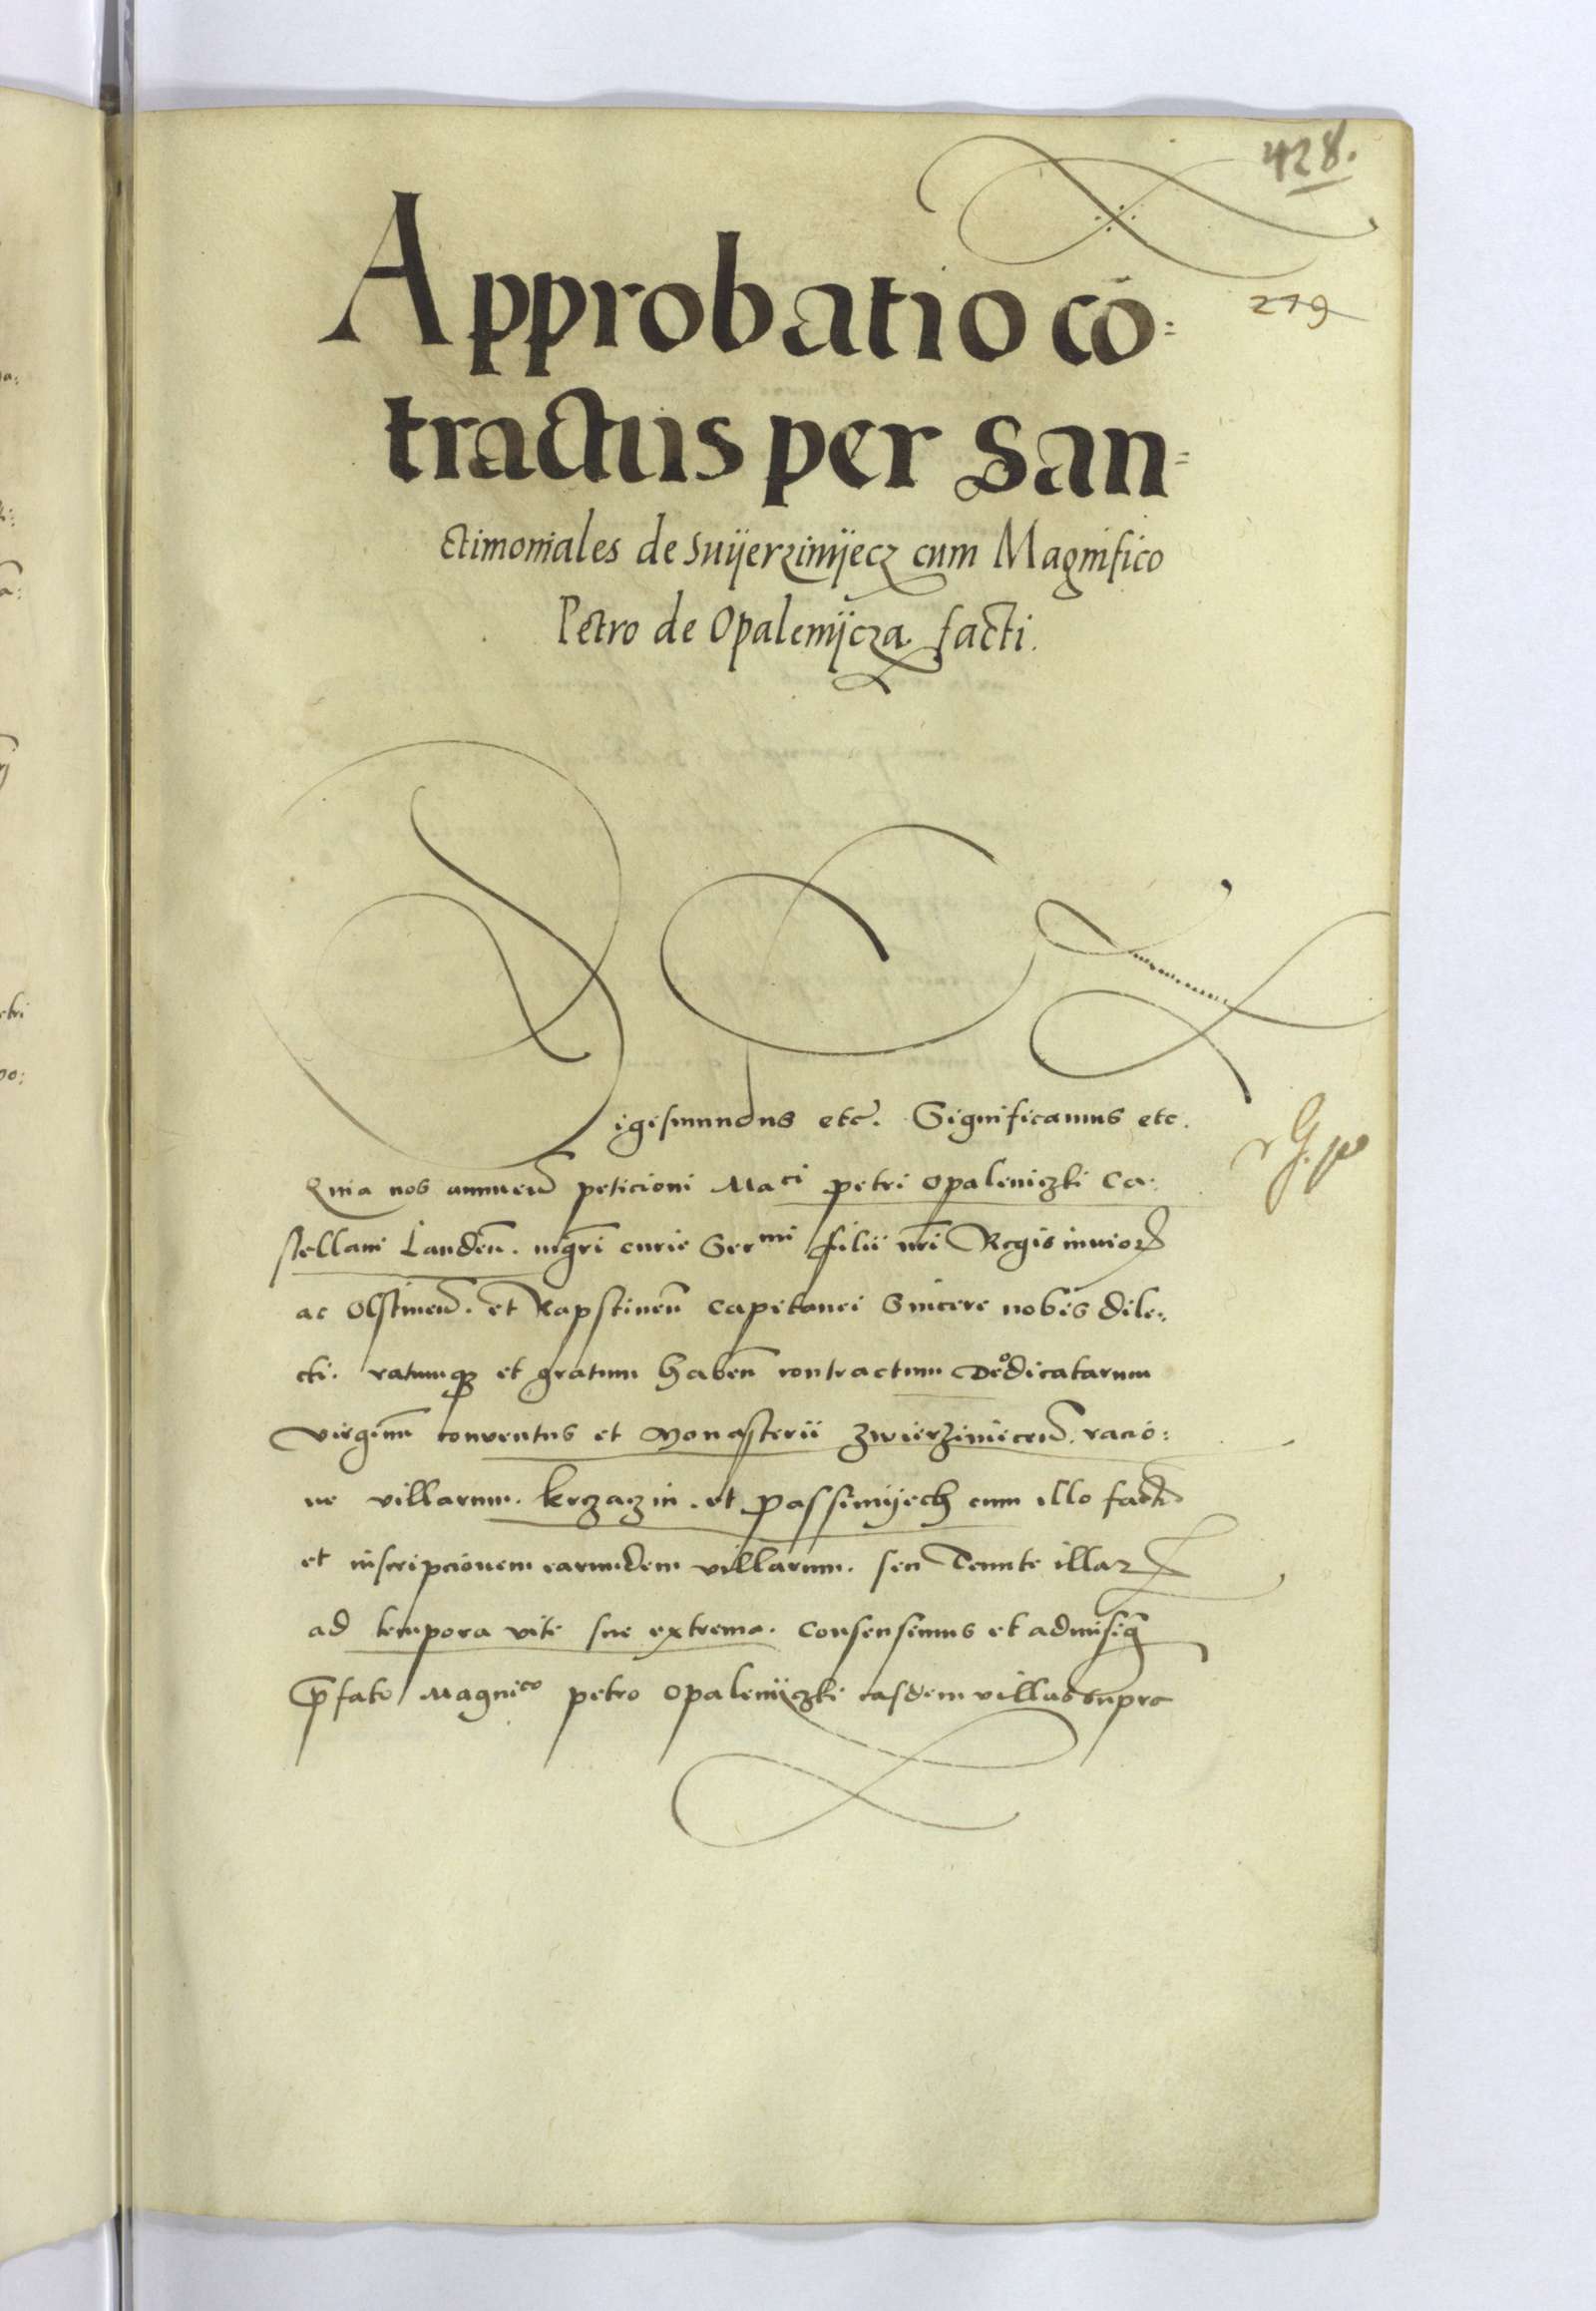 428.
Approbatio cō=
219
tractus per san=
ctimoniales de Suÿerzinÿecz cum Magnifico
Petro de Opalenÿcza facti.
Sigismundus etc. Significamus etc.
Quia nos annuen̄ peticioni Maci petri Opaleniczki Ca:
stellani Landen̄. mgr̄i curie Sermi filii nr̄i Regis iunior
ac Olstinen̄. et Kapstinen̄ capitanei Sincere nobis dile:
cti. ratumq et gratum haben̄ contractum Deodicatarum
virginū conventus et Monasterii Zwierziniecen̄. racio:
ne villarum. krzazin. et passinÿech cum illo facti
et inscripcionem earundem villarum. seu tenute illar
ad tempora vite sue extrema. Consensimus et admisiq
p̄fato Magnico petro Opalenÿczki easdem villas supra